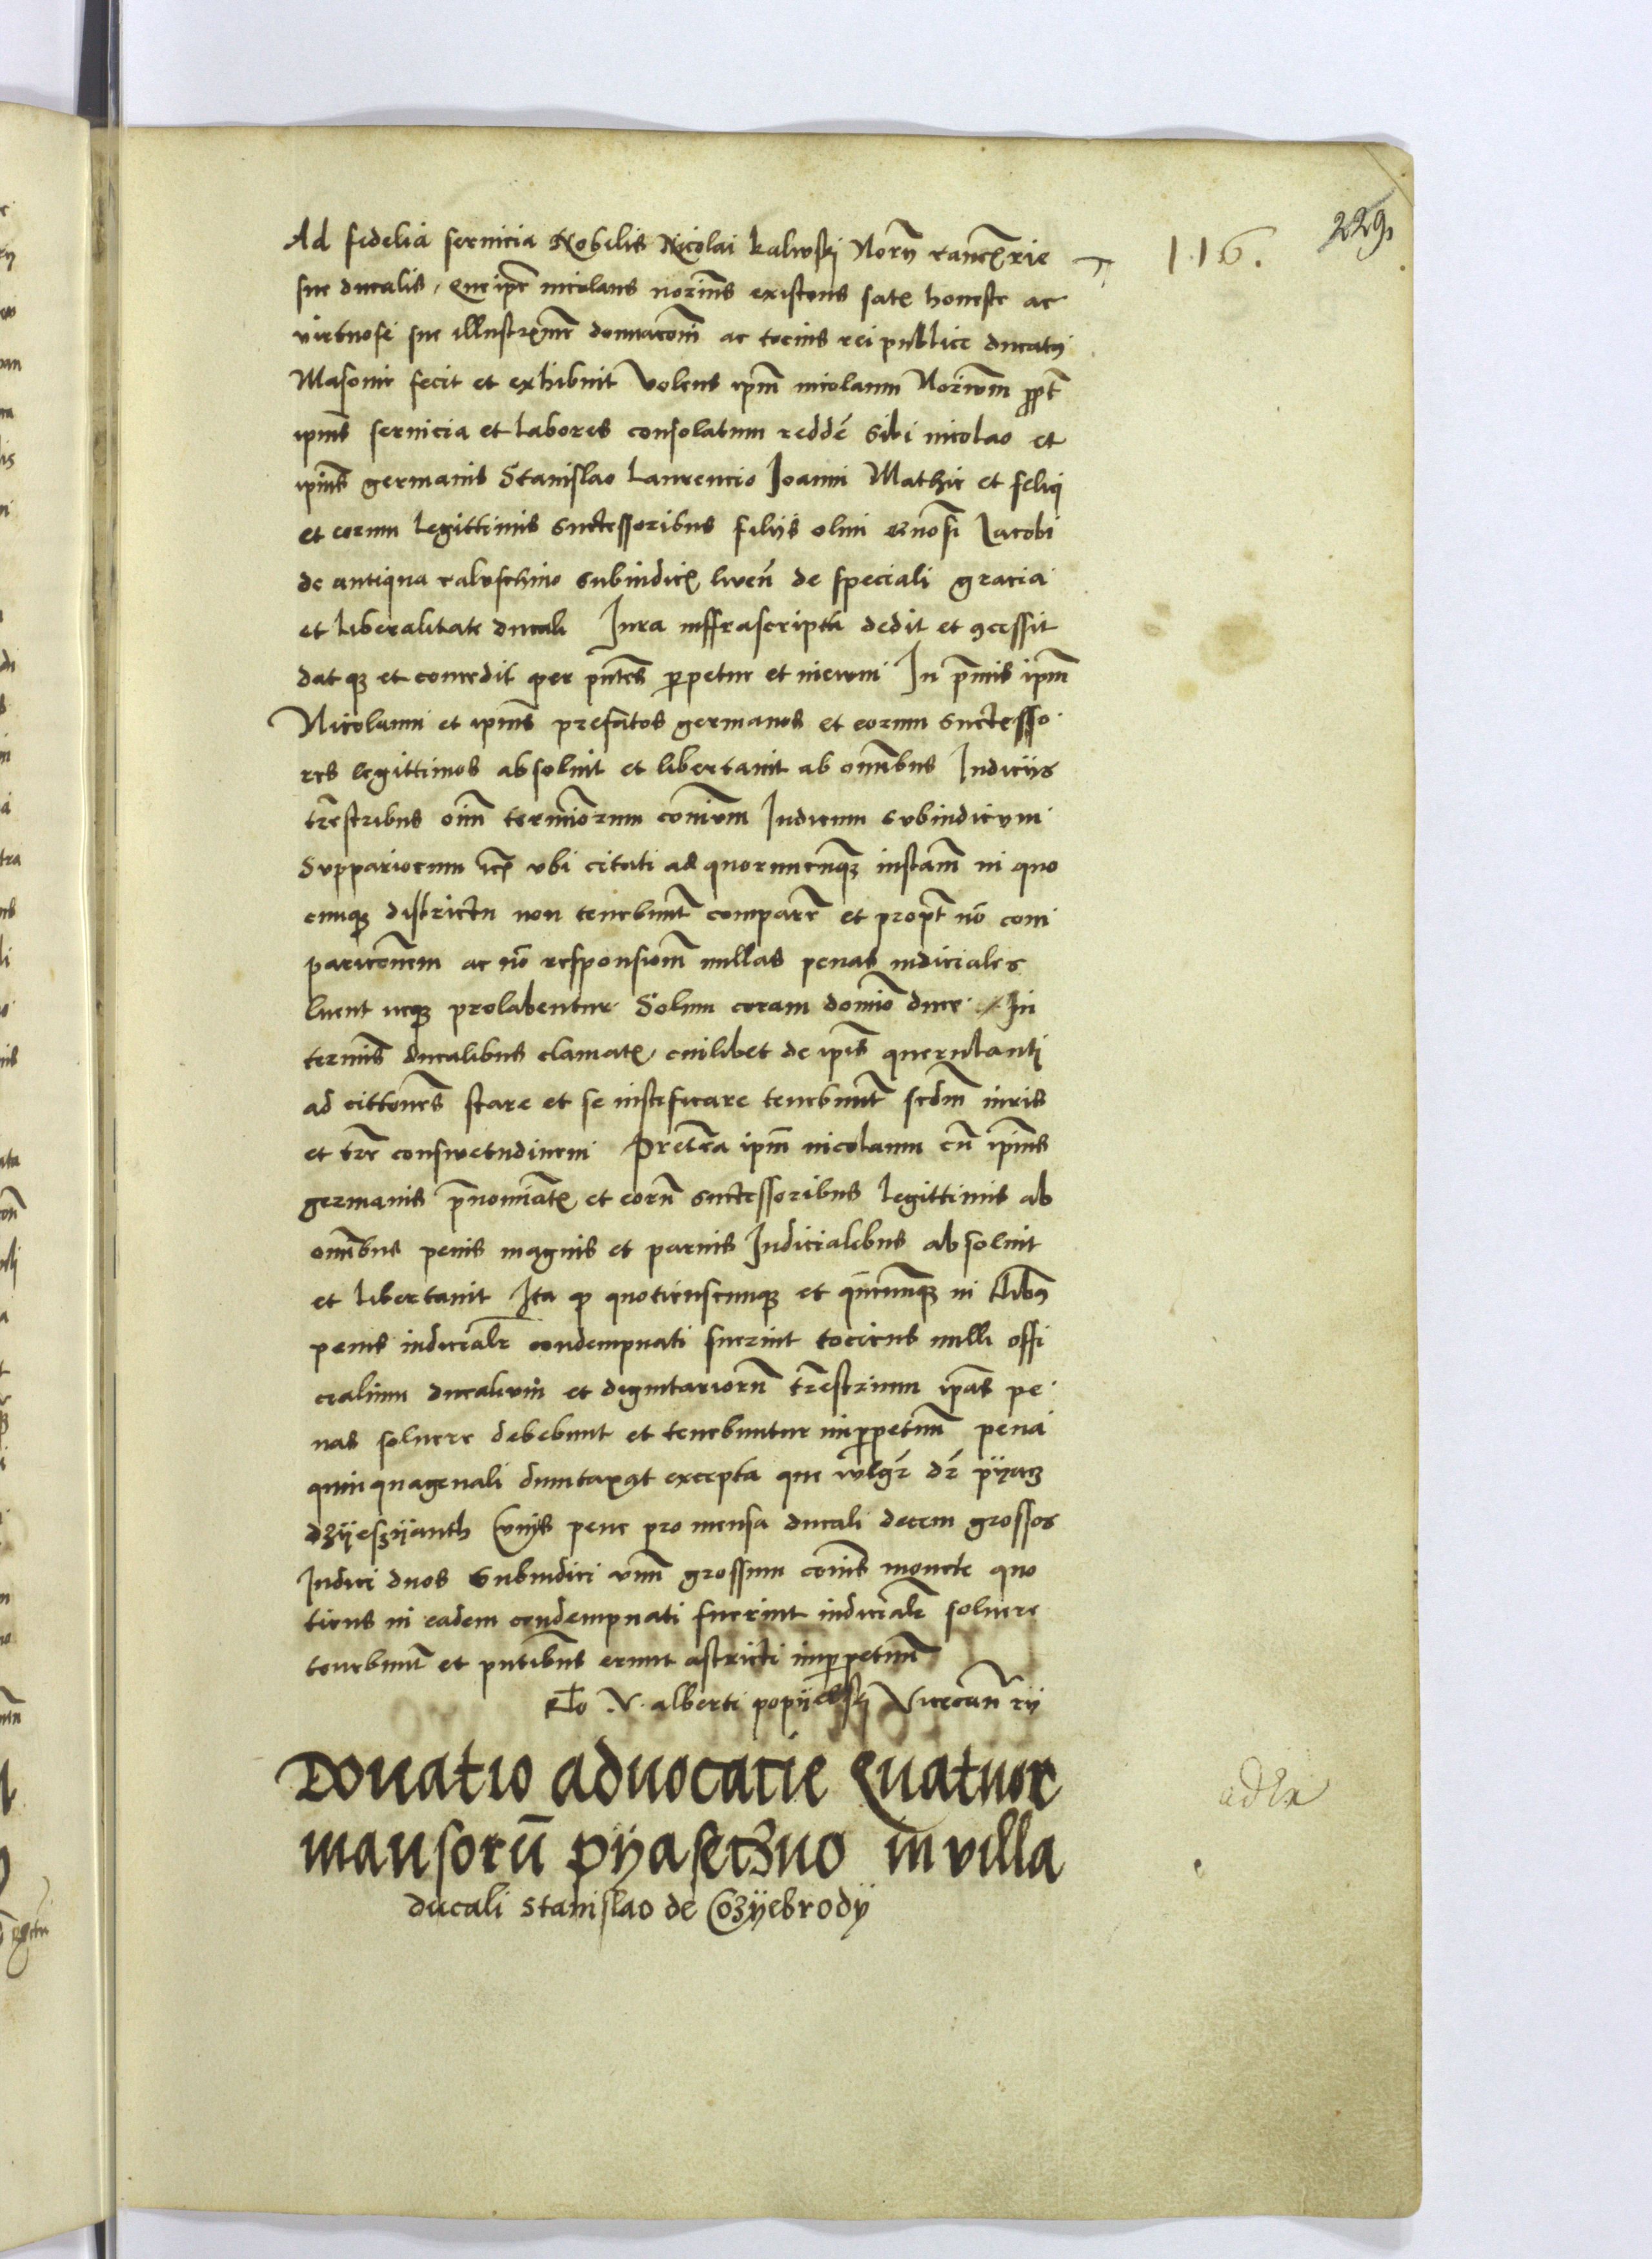 229
116.
Ad fidelia servicia Nobilis Nicolai kalwskj Norij cancellrie
sue ducalis, Que ipe nicolaus norius existens satis honeste ac
virtuose sue illustrime domnaconi ac tocius rei publice ducatus
Masovie fecit et exhibuit Volens ipm nicolaum Noriom propt
ipius servicia et labores consolatum redde sibi nicolao et
ipius germanis Stanislao Laurencio Joanni Mathie et felici
et eorum legittimis successoribus filiis olim Jacobi
de antiqua subiudicis liven de speciali gracia
et liberalitate ducali Jura inffrascripta dedit et concessit
dat que et concedit per pntes perpetue et in evum In primis ipm
Nicolaum et ipius prefatos germanos et eorum successo
res legittimos absolvit et libertavit ab omnibus Judiciis
trestribus oim terminorum comium Judicum subiudicum
Suppariorum ubi citati ad quorumcunque instam in quo
cunque districtu non tenebunt compare et propt no com
paricionem ac no responsiom nullas penas iudiciales
luent neque prolabentur Solum coram domino duce In
termis ducalibus clamatis cuilibet de ipis querulanti
ad cittones stare et se iustificare tenebunt scdm iuris
et tre conswetudinem Pretea ipm nicolaum cu ipius
germanis pnomiatis et eoru successoribus legittimis ab
omibus penis magnis et parvis Judicialibus absolvit
et libertavit Ita quod quotienscunque et quicunque in
penis iudicialr condempnati fuerint tociens nulli offi
cialium ducalium et dignitariorum trestrium ipas pe
nas solvere debebunt et tenebuntur inperpetuum pena
quinquagenali dumtaxat excepta que wlgr dr pyacz
dzyeszyanth Cuius pene pro mensa ducali decem grossos
Judici duos Subiudici unu grossum comis monete quo
tiens in eadem condempnati fuerint iudicialr solvere
tenebunt et pntibus erunt astricti inperpetuum
Ro V. alberti popijelskj Vicecanrij
Donatio advocacie Quatuor
mansoru Pyaseczno in villa
ducali Stanislao de Cozyebrody